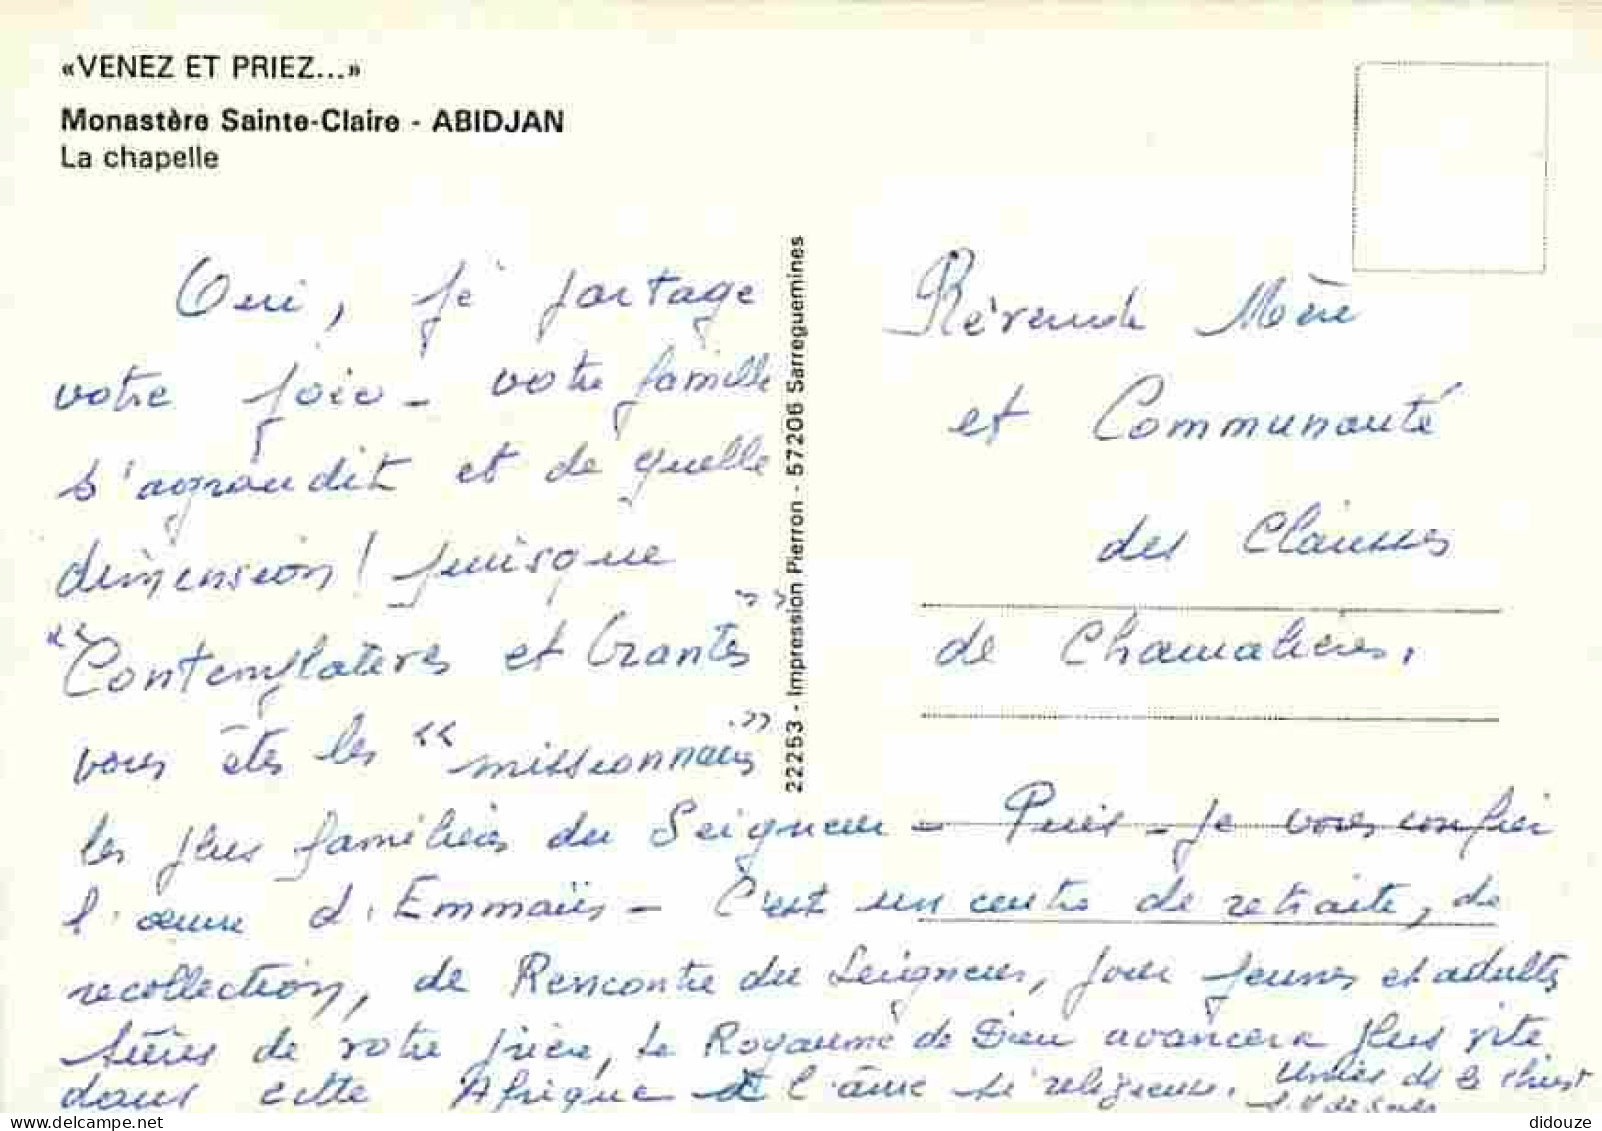 «VENEZ ET PRIEZ...»
Monastère Sainte-Claire - ABIDJAN
La chapelle
Oui, je partage
votre joie - votre famille
s'agrandit et de quelle
dimension ! puisque
"Contemplatives et Orantes"
vous êtes les "missionnaires"
les plus familiers du Seigneur - Puis - je vous confier
l'œuvre d'Emmaüs - C'est un centre de retraite, de
recollection, de Rencontre du Seigneur, pour jeunes et adultes
de votre prière, le Royaume de Dieu avancera plus vite
dans cette Afrique à l'âme si religieuse. Unies de le Christ
22253 - Impression Pierron - 57206 Sarreguemines
Révérende Mère
et Communauté
des Clarisses
de Chamalières.
delcampe.net
didouze